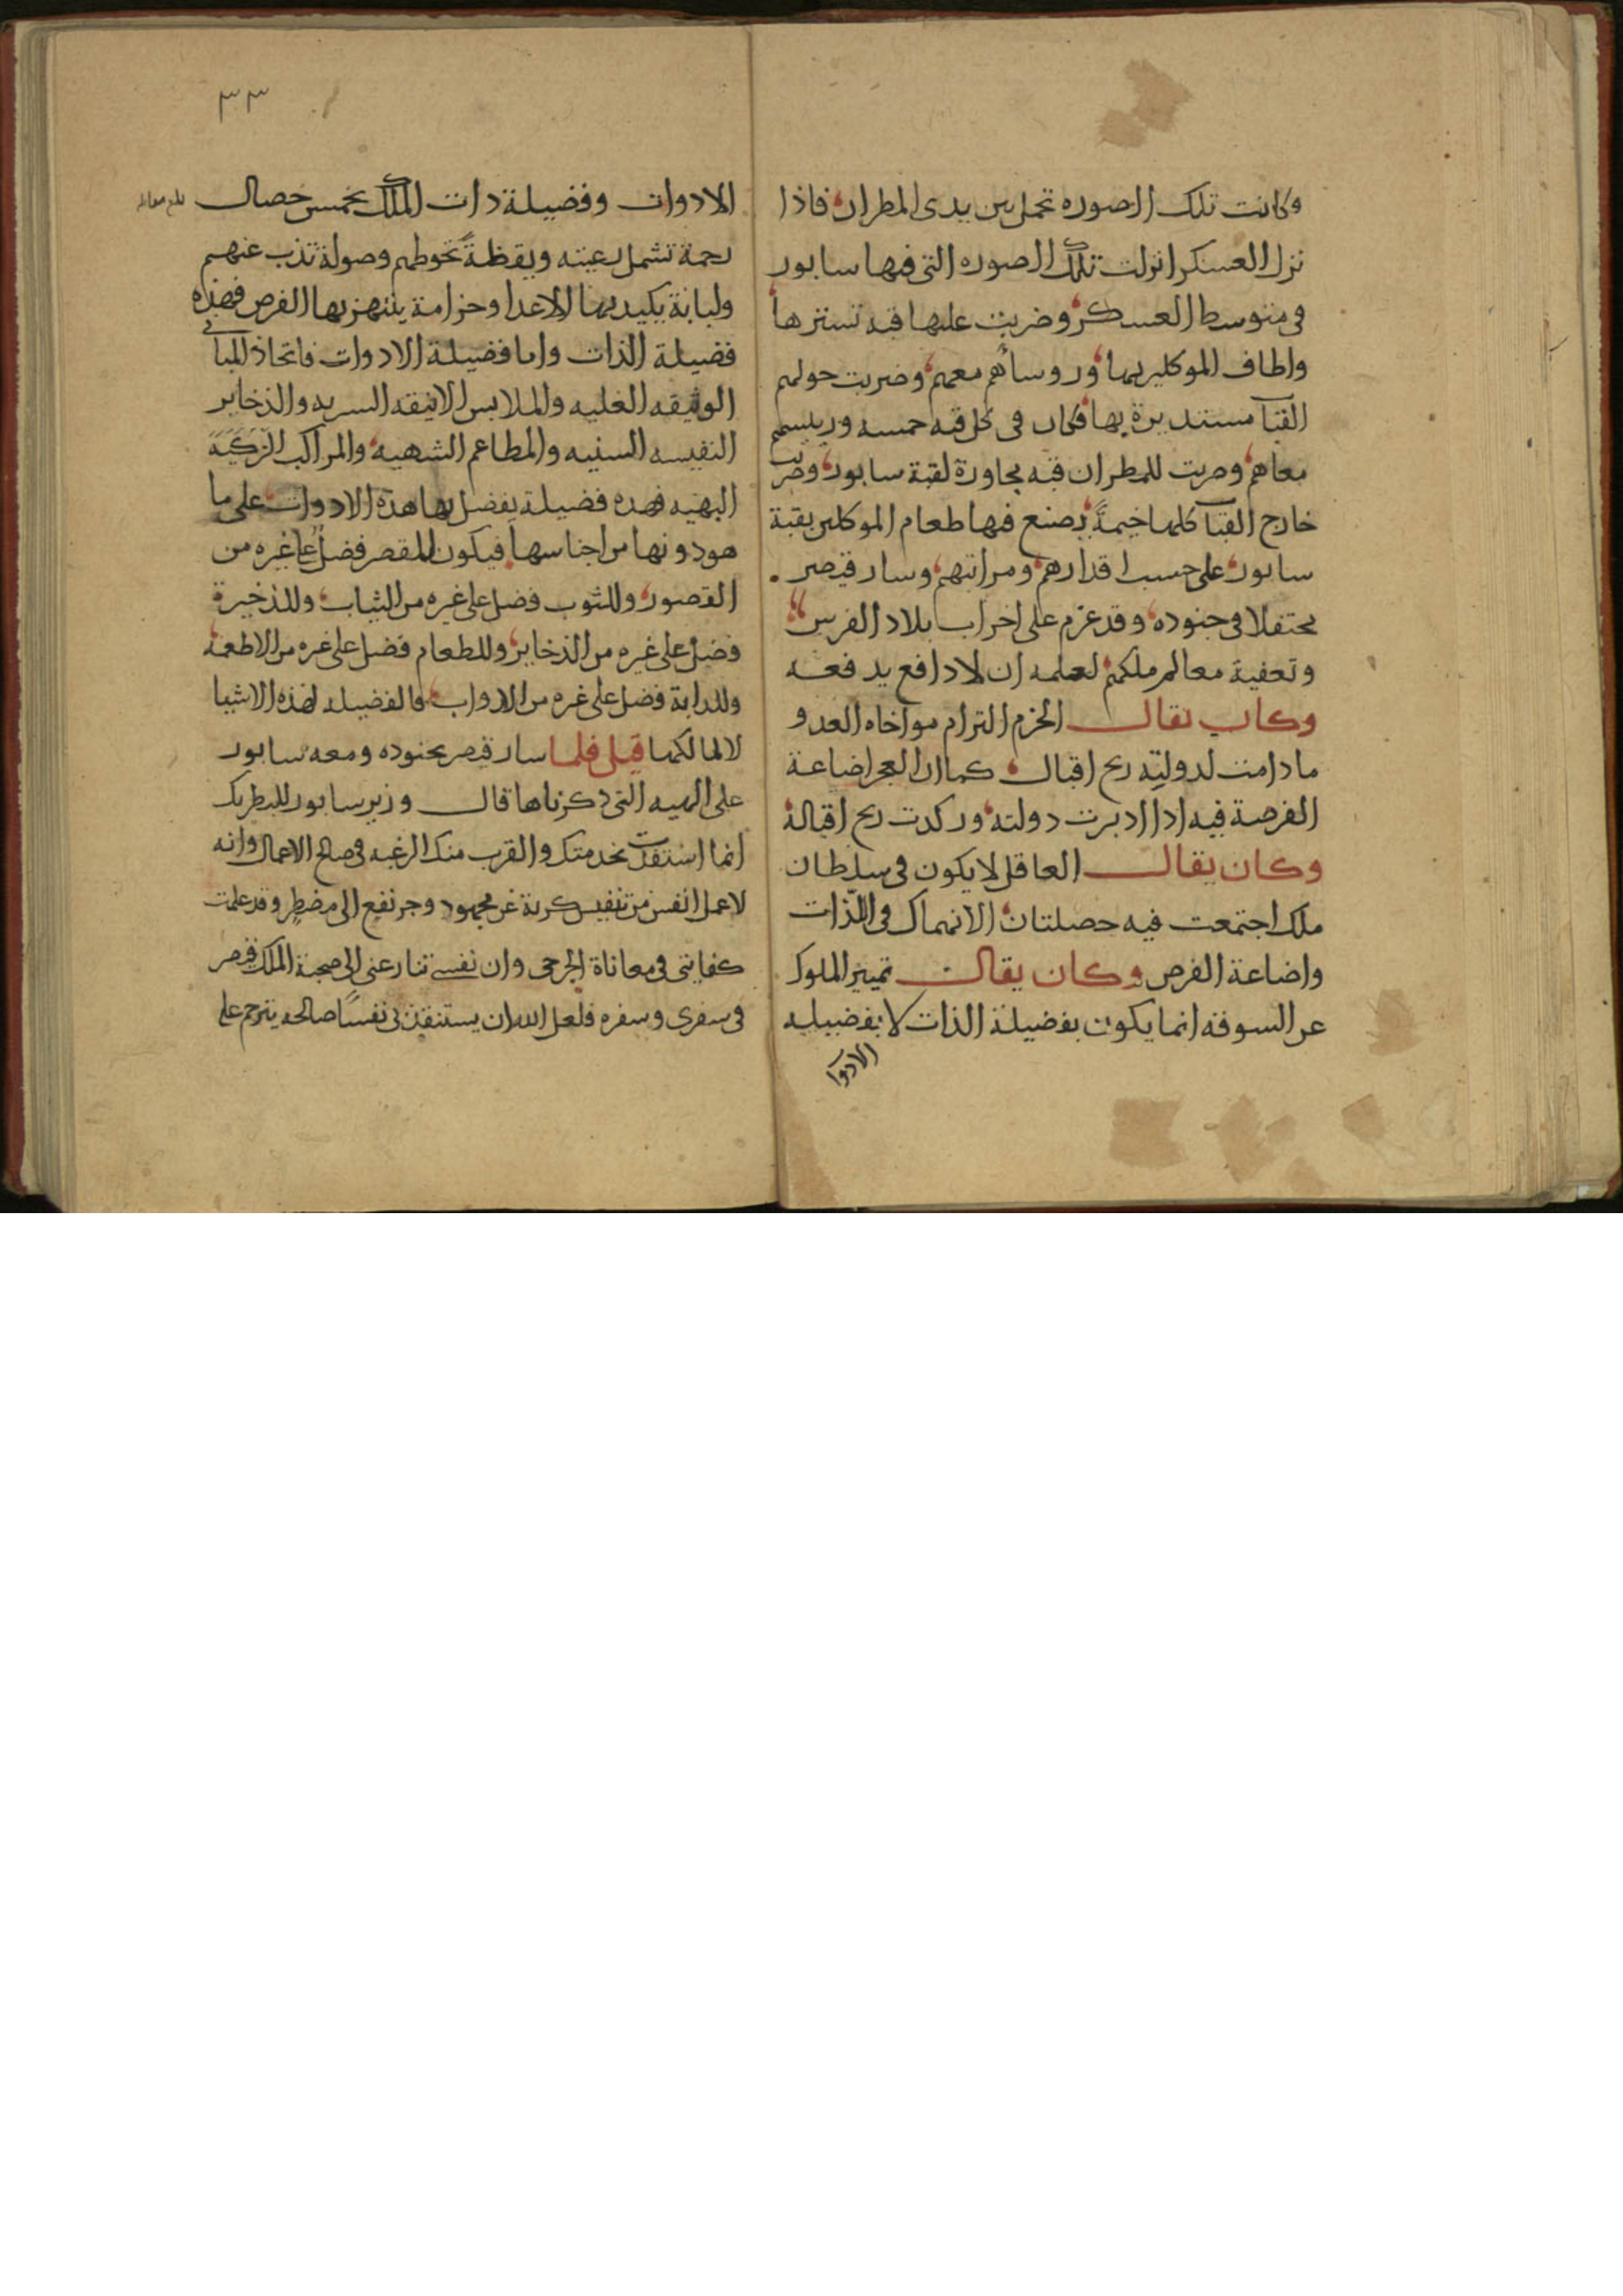 وكانت تلك الصوره تحمل بين يدى المطران فاذا
نزل العسكر انزلت تلك الصوره التى فيها سابور
فى متوسط العسكر وضربت عليها قبه تسترها
واطاف الموكلين بها وروساهم معهم وضربت حولهم
القباب مستديرة بها فكان فى كل قبه خمسه ورييسهم
معاهم وضربت للمطران قبه مجاورة لقبة سابور وضرب
خارج القباب كلها خيمةً يصنع فيها طعام الموكلين بقبة
سابور على حسب اقدارهم ومراتبهم وسار قيصر
محتفلا فى جنوده وقد عزم على اخراب بلاد الفرس
وتعفية معالم ملكهم لعلمه ان لا دافع يدفعه
وكان يقال الحزم التزام مواخاه العدو
مادامت لدولته ريح اقبال كما ان العجز اضاعة
الفرصة فيه اذا ادبرت دولته وركدت ريح اقباله
وكان يقال العاقل لا يكون فى سلطان
ملك اجتمعت فيه خصلتان الانهماك فى اللذات
واضاعة الفرص وكان يقال تمييز الملوك
عن السوقه انما يكون بفضيلة الذات لا بفضيله
الادوا
٣٣
الادوات وفضيلة ذات الملك بخمس خصال
رحمة تشمل رعيته ويقظةً تحوطهم وصولة تذب عنهم
ولبابة يكيد بها الاعدا وحزامة ينتهز بها الفرص فهذه
فضيلة الذات واما فضيلة الادوات فاتخاذ المبانى
الوثيقه العليه والملابس الانيقه السريه والذخاير
النفيسه السنيه والمطاعم الشهيه والمراكب الزكيَّة
البهيه فهذه فضيلة يفضل بها هذه الادوات على ما
هو دونها من اجناسها فيكون للقصر فضلٌ على غيره من
القصور وللثوب فضل على غيره من الثياب وللذخيرة
فضل على غيره من الذخاير وللطعام فضل على غيره من الاطعمة
وللدابة فضل على غيره من الدواب فالفضيله لهذه الاشيا
لا لمالكها قيل فلما سار قيصر بجنوده ومعه سابور
على الهيه التى ذكرناها قال وزير سابور للبطريك
انما استفدت بخدمتك والقرب منك الرغبه فى صالح الاعمال وانه
لا عمل انفس من تنفيس كربة عن مجهود وجر نفع الى مضطر وقد علمت
كفايتى فى معاناة الجرحى وان نفسى تنازعنى الى صحبة الملك قيصر
فى سفرى وسفره فلعل الله ان يستنقذ بى نفسًا صالحه يترحم على